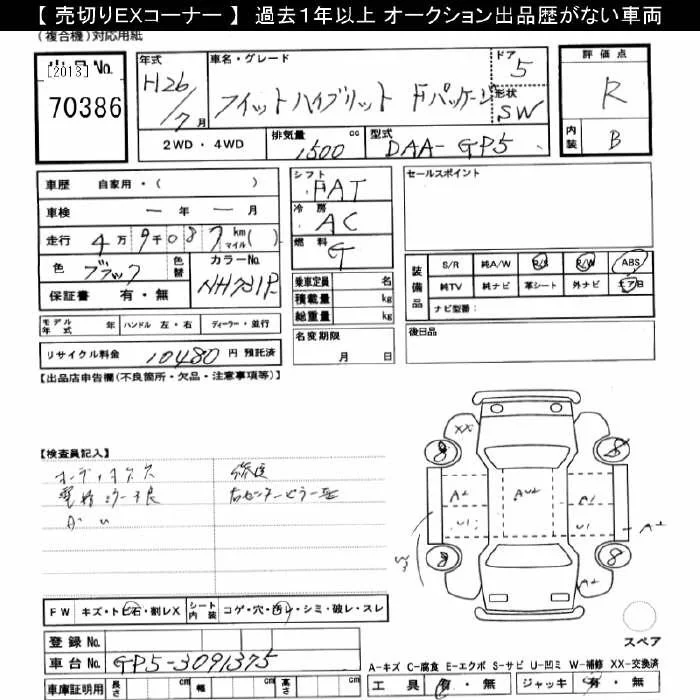 【 売切りEXコーナー 】 過去1年以上 オークション出品歴がない車両
(複合機)対応用紙
出品No.
[2013]
70386
年式 H26/7月
車名・グレード
フィットハイブリット Fパッケージ
ドア 5
形状 SW
評価点
R
内装 B
2WD・4WD
排気量 1500 cc
型式 DAA-GP5
車歴 自家用・( )
車検 ー年ー月
走行 4万9千087 km マイル( )
色 ブラック
色替
カラーNo. NH731P
保証書 有・無
シフト FAT
冷房 AC
燃料 G
乗車定員 名
積載量 kg
総重量 kg
名変期限
月 日
セールスポイント
装備品
S/R 純A/W P/S P/W ABS
純TV 純ナビ 革シート 外ナビ エアB
ナビ型番:
後日品
モデル年式 年 ハンドル 左・右 ディーラー・並行
リサイクル料金 10480 円 預託済
【出品店申告欄(不良箇所・欠品・注意事項等)】
【検査員記入】
オーディオレス
修復
電格ミラー不良
右センターピラー歪
A・U
FW キズ・ト石・割レX シート内装 コゲ・穴・汚レ・シミ・破レ・スレ
登録 No.
車台 No. GP5-3091375
車庫証明用 長さ cm 幅 cm 高さ cm
XX
8
8
8
8
A2
AU2
A1
U1
U1
A2
W3
A2
スペア
A-キズ C-腐食 E-エクボ S-サビ U-凹ミ W-補修 XX-交換済
工具 有・無 ジャッキ 有・無